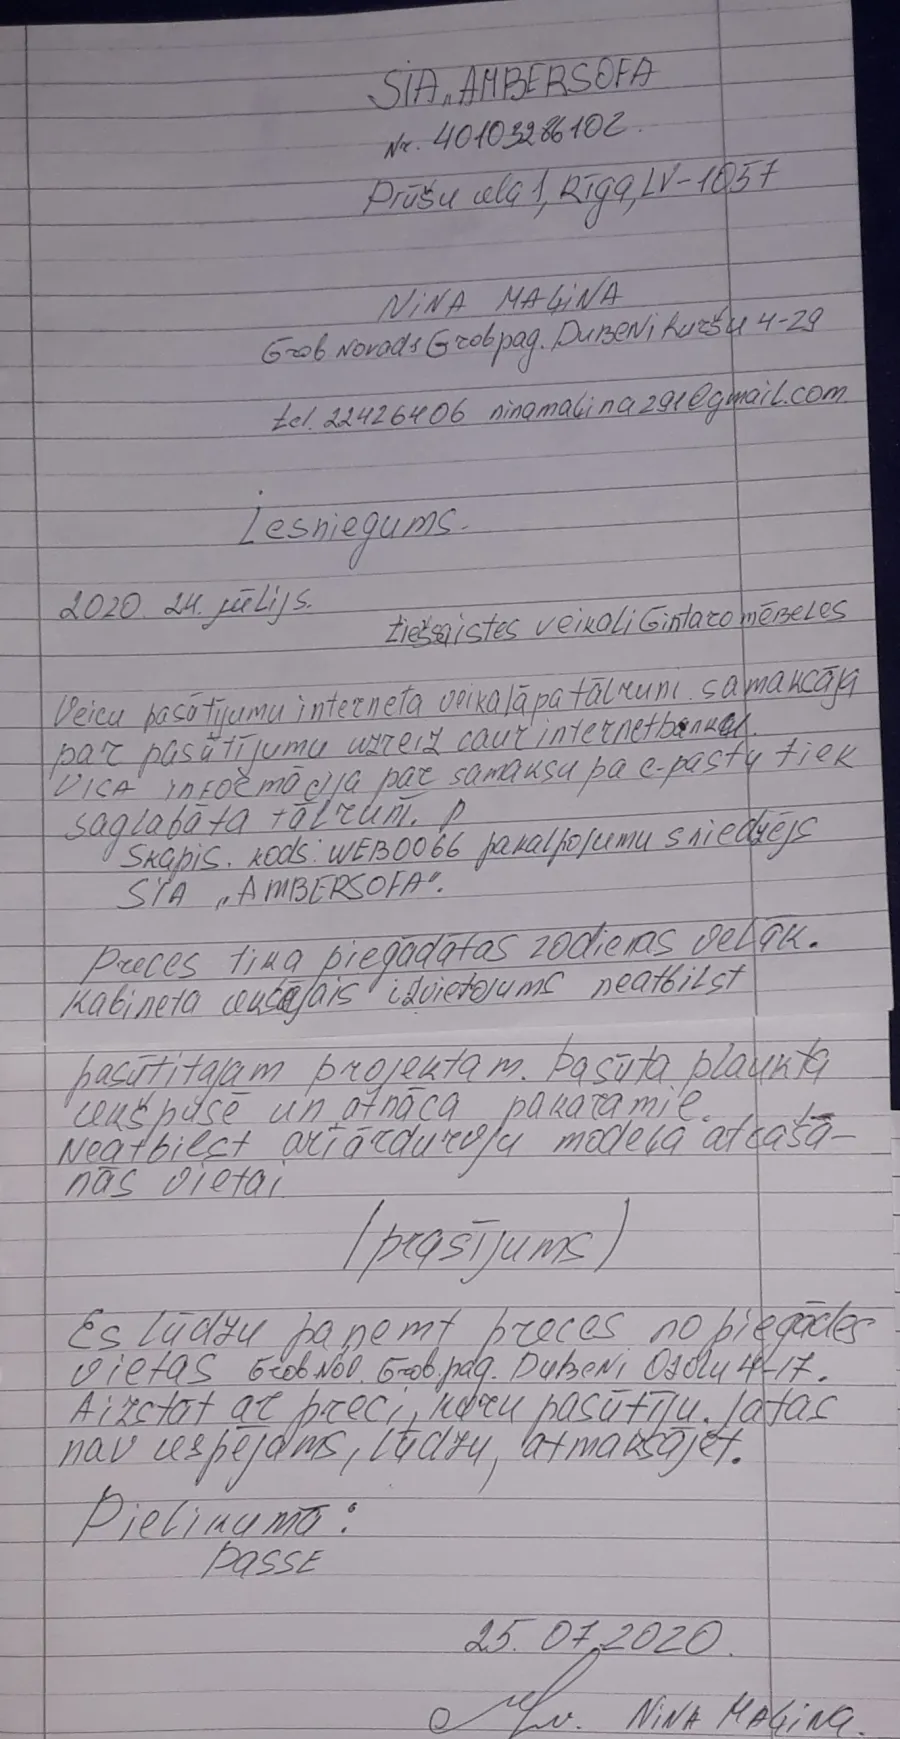 SIA „AMBERSOFA
Nr. 40103286102.
Prūšu iela 1, Rīga, LV-1057
NiNA MAĻiNA
Grob Novads Grobpag. DUBENi Kuršu 4-29
tel. 22426406 ninamaļina291@gmail.com
Iesniegums.
2020. 24. jūlijs.
tiešsaistes veikali Gintaro mēBELES
Veicu pasūtījumu interneta veikalā pa tālruni. samaksāja
par pasūtījumu uzreiz caur internetbankai.
VICA informācija par samaksu pa e-pastu tiek
saglabāta tālrunī. p
Skapis. kods: WEB0066 pakalpojumu sniedzējs
SIA „AMBERSOFA".
Preces tika piegādātas 2 dienas vēlāk.
Kabineta iekšējais izvietojums neatbilst
pasūtītajam projektam. Pasūta plaukta
iekšpusē un atnāca pakaramie.
Neatbilst arī ārdurvju modeļā atrašā-
nās vietai
(prasījums)
Es lūdzu paņemt preces no piegādes
vietas Grob.Nov. Grob.pag. DUBENi Ozolu 4-17.
Aizstāt ar preci, kuru pasūtīju. Ja tas
nav iespējams, lūdzu, atmaksājet.
Pielikumā:
PASSE
25. 07. 2020.
NiNA MAĻiNA.